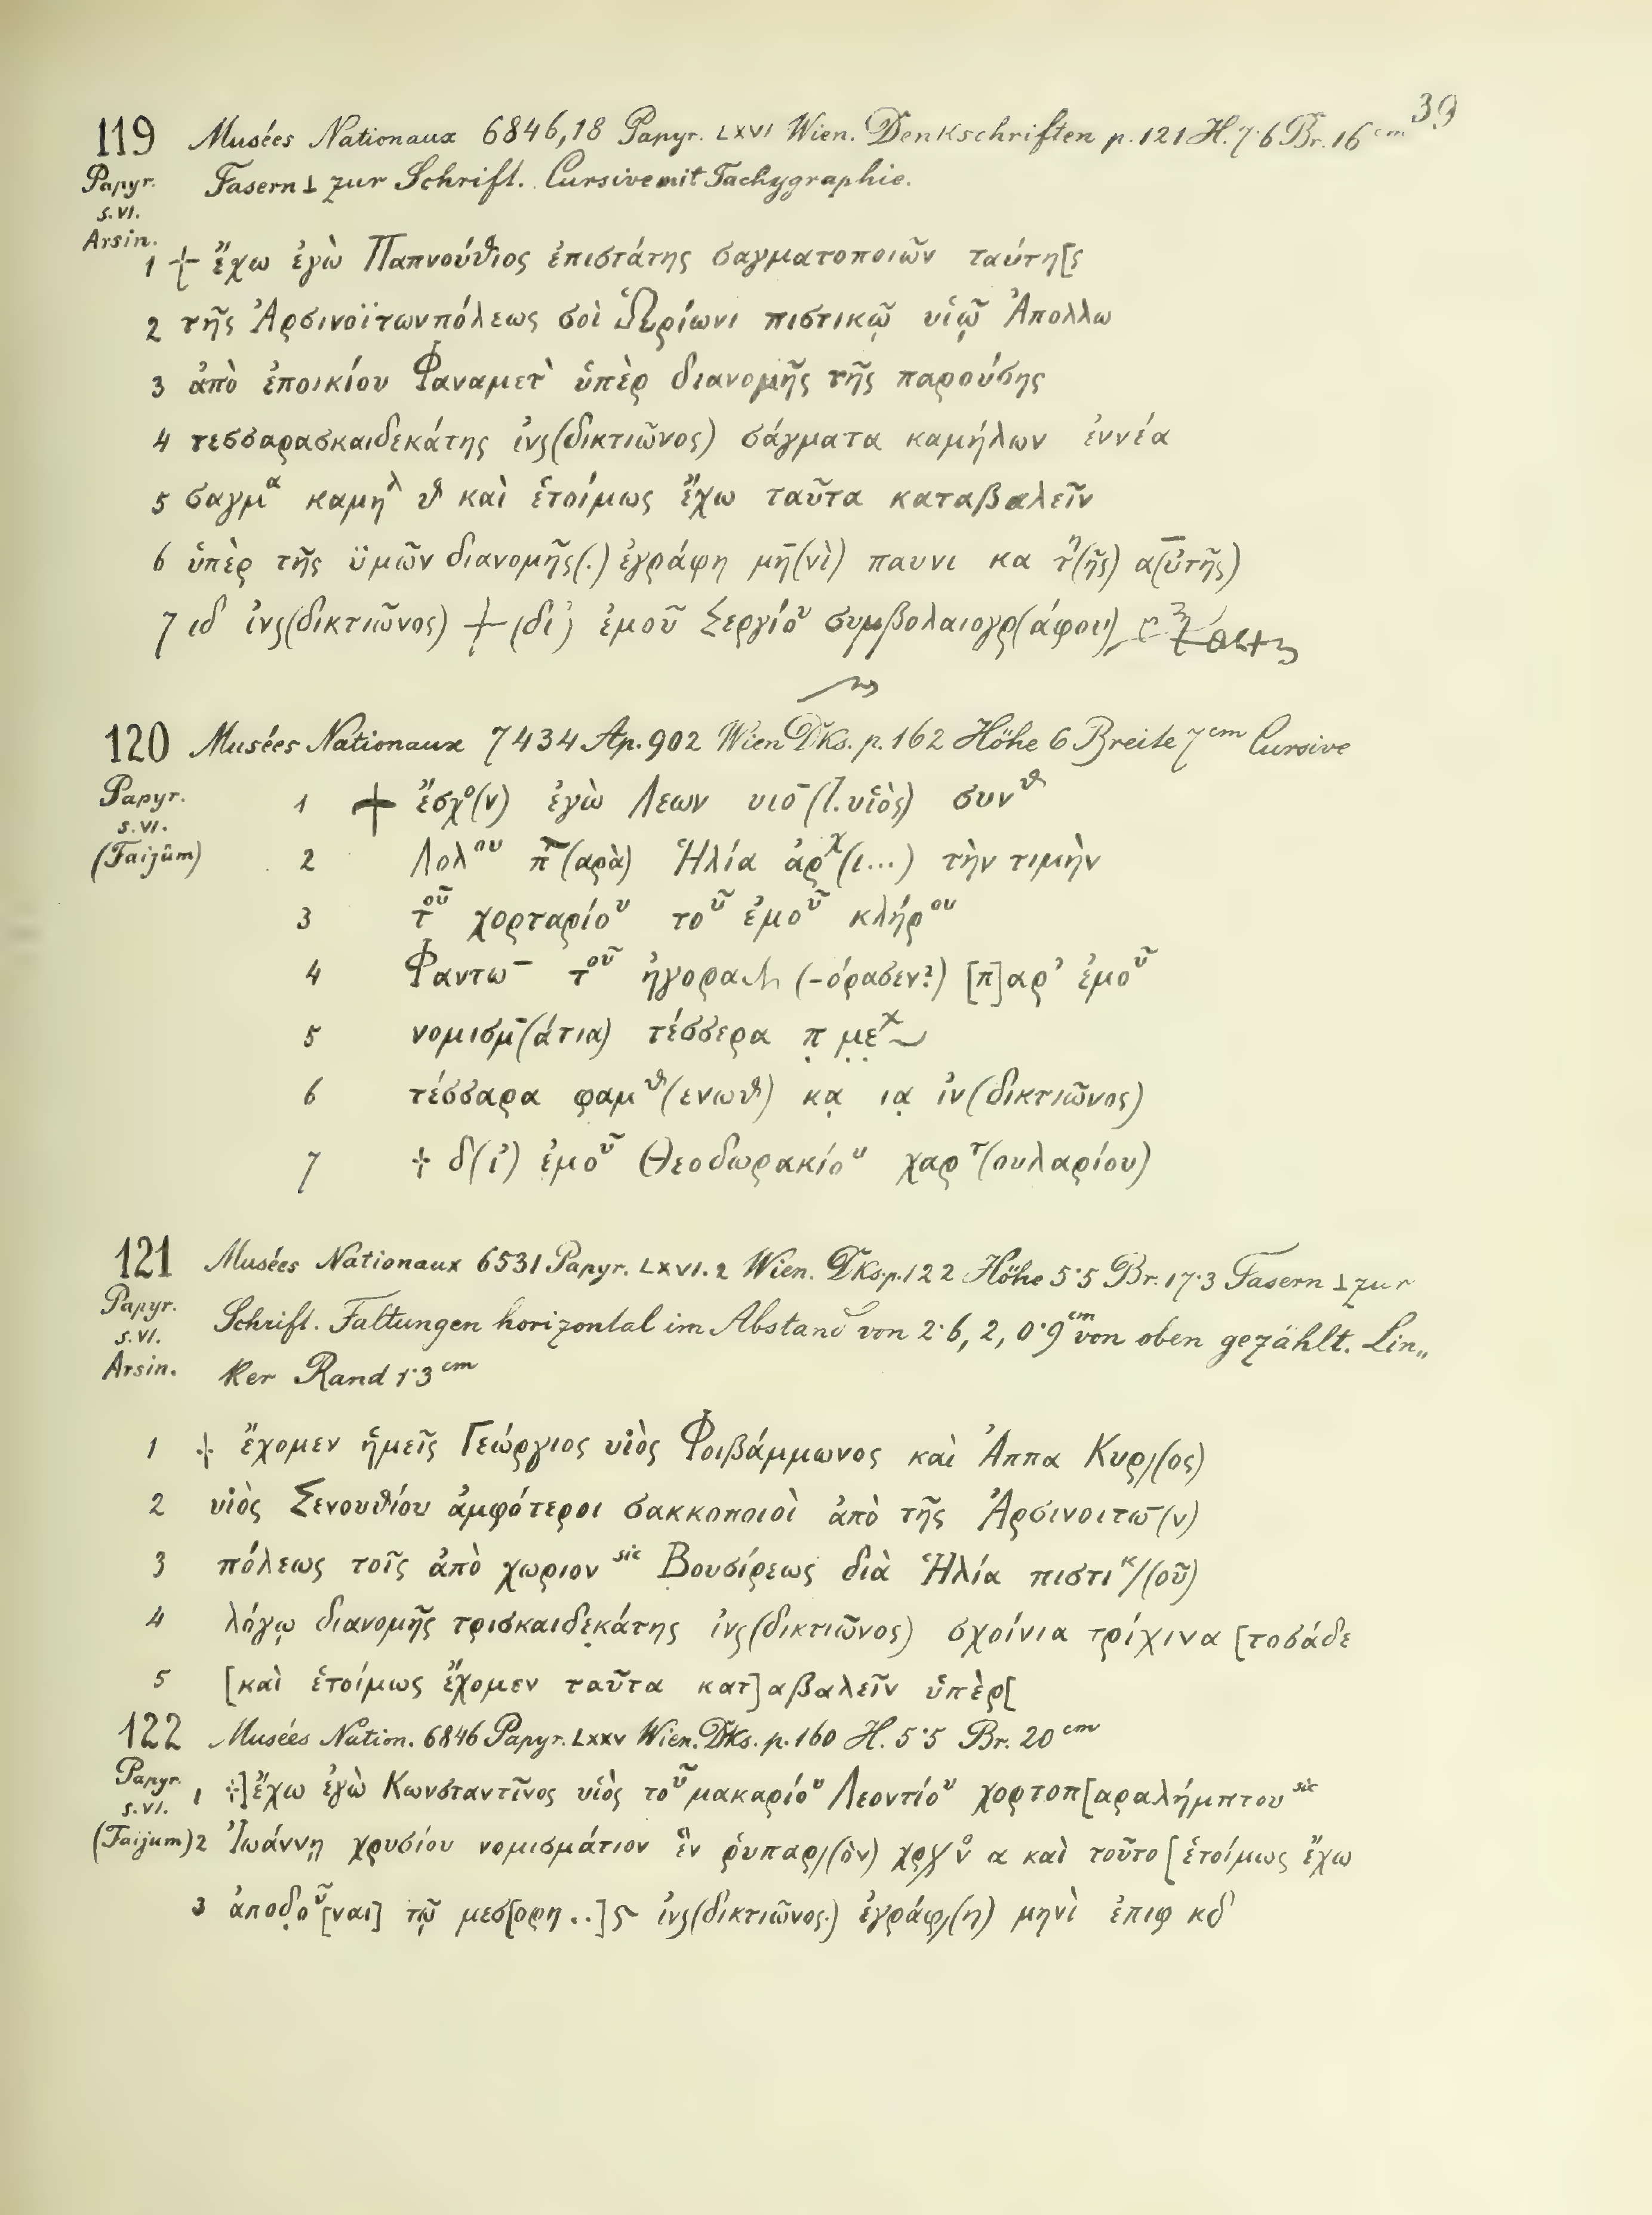 39
119 Musées Nationaux 6846,18 Papyr. LXVI Wien. Denkschriften p.121 H. 7·6 Br. 16 cm
Papyr. Fasern ⊥ zur Schrift. Cursive mit Tachygraphie.
s.VI.
Arsin.
1 + ἔχω ἐγὼ Παπνούθιος ἐπιστάτης σαγματοποιῶν ταύτη[ς
2 τῆς Ἀρσινοϊτωνπόλεως σοὶ πιστικῷ υἱῷ Ἀπολλω
3 ἀπὸ ἐποικίου Φαναμετ̀ ὑπὲρ διανομῆς τῆς παρούσης
4 τεσσαρασκαιδεκάτης ἰνς(δικτιῶνος) σάγματα καμήλων ἐννέα
5 σαγμᵅ καμηλ θ καὶ ἑτοίμως ἔχω ταῦτα καταβαλεῖν
6 ὑπὲρ τῆς ϋμῶν διανομῆς(.) ἐγράφη μη̄(νὶ) παυνι κα τ͑η(ῆς) α(ὐτῆς)
7 ιδ ἰνς(δικτιῶνος) + (δι᾽) ἐμοῦ Σεργίου συμβολαιογρ(άφου)
120 Musées Nationaux 7434 Ap. 902 Wien Dks. p. 162 Höhe 6 Breite 7 cm Cursive
Papyr.
s.VI.
(Faijûm)
1 + ἔσχο(ν) ἐγὼ Λεων υιο̄ (l. υἱὸς) συνθ
2 Λολου π̄(αρὰ) Ἡλία ἀρχ(ι...) τὴν τιμὴν
3 τοῦ χορταρίου τοῦ ἐμοῦ κλήρου
4 Φαντω– τοῦ ἠγορα (-όρασεν?) [π]αρ᾽ ἐμοῦ
5 νομισμ̄(άτια) τέσσερα π̣ μ̣ε̣χ
6 τέσσαρα φαμθ(ενωθ) κα̣ ια̣ ἰν(δικτιῶνος)
7 + δ(ι᾽) ἐμοῦ Θεοδωρακίου χαρτ(ουλαρίου)
121 Musées Nationaux 6531 Papyr. LXVI.2 Wien. Dks. p. 122 Höhe 5·5 Br. 17·3 Fasern ⊥ zur
Papyr. Schrift. Faltungen horizontal im Abstand von 2·6, 2, 0·9 cm von oben gezählt. Lin„
s.VI.
Arsin. ker Rand 1·3 cm
1 + ἔχομεν ἡμεῖς Γεώργιος υἱὸς Φοιβάμμωνος καὶ Ἀππα Κυρ/(ος)
2 υἱὸς Σενουθίου ἀμφότεροι σακκοποιοὶ ἀπὸ τῆς Ἀρσινοιτω̄(ν)
3 πόλεως τοῖς ἀπὸ χωριον sic Βουσίρεως διὰ Ἡλία πιστικ/(οῦ)
4 λόγῳ διανομῆς τρισκαιδε̣κάτης ἰνς(δικτιῶνος) σχοίνια τρίχινα [τοσάδε
5 [καὶ ἑτοίμως ἔχομεν ταῦτα κατ]αβαλεῖν ὑπὲρ[
122 Musées Nation. 6846 Papyr. LXXV Wien. Dks. p. 160 H. 5·5 Br. 20 cm
Papyr.
s.VI.
1 +]ἔχω ἐγὼ Κωνσταντῖνος υἱὸς τοῦ μακαρίου Λεοντίου χορτοπ[αραλήμπτου sic
(Faijum) 2 Ἰωάννῃ χρυσίου νομισμάτιον ἓν ῥυπαρ/(ὸν) α καὶ τοῦτο [ἑτοίμως ἔχω
3 ἀποδ̣οῦ[ναι] τῷ μεσ[ορη ..]ς ἰνς(δικτιῶνος.) ἐγράφ/(η) μηνὶ ἐπιφ κδ